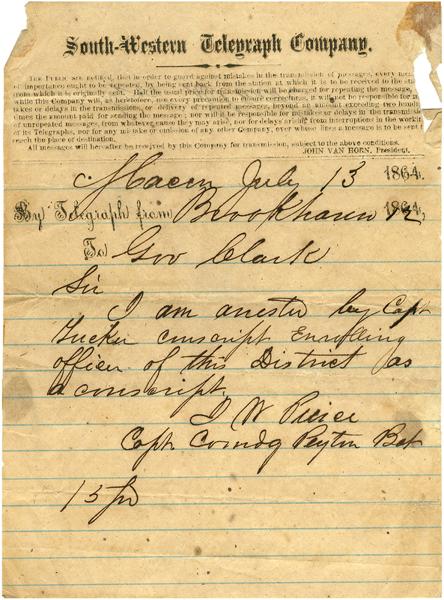 South-Western Telegraph Company.
THE PUBLIC are notified, that in order to guard against mistakes in the transmission of messages, every
of importance ought to be repeated, by being sent back from the station at which it is to be received to the
from which it is originally sent. Half the usual price for transmission will be charged for repeating the message,
while this Company will, as heretofore, use every precaution to ensure correctness, it will not be responsible for
takes or delays in the transmission, or delivery of repeated messages, beyond an amount exceeding two
times the amount paid for sending the message; nor will it be responsible for mistakes or delays in the
of unrepeated messages, from whatever cause they may arise, nor for delays arising from interruptions in the
its Telegraphs, nor for any mistake or omission of any other Company, over whose lines a message is to be sent
reach the place of destination.
All messages will hereafter be received by this Company for transmission, subject to the above conditions.
JOHN VAN HORN, President.
Macon July 13 1864.
By Telegraph from Brookhaven 12 1864,
To Gov Clark
Sir
I am arrested by Capt
Tucker conscript Enrolling
officer of this District as
a conscript.
J W Peirce
Capt Comdg Peyton Bat
15